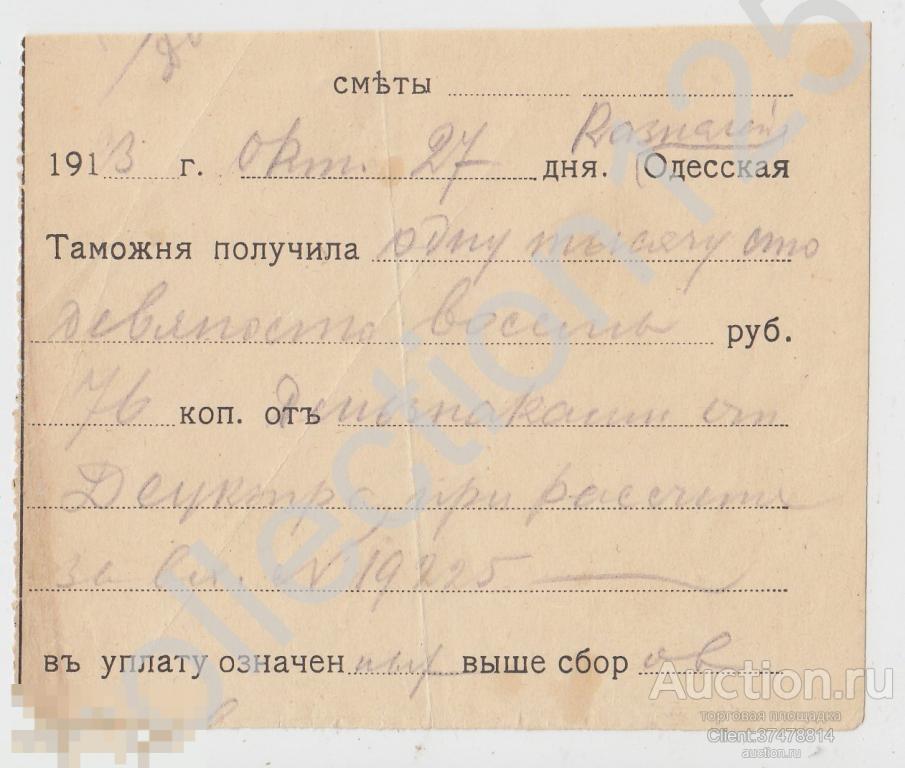 смѣты
Казначей
1913 г. Окт. 27 дня. Одесская
Таможня получила одну тысячу сто
девяносто восемь руб.
76 коп. отъ
при рассчете
за № 19225
въ уплату означенных выше сборов
collection125
Auction.ru
торговая площадка
Client:37478814
auction.ru